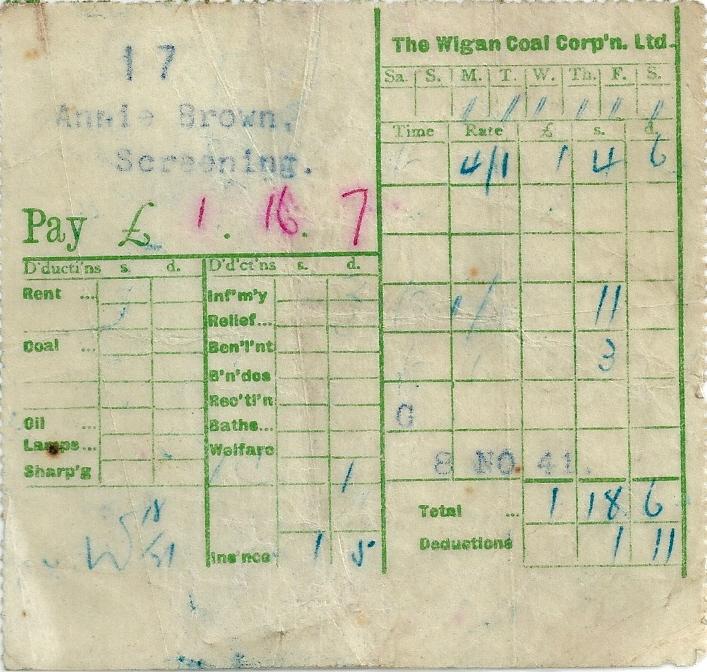 17
Annie Brown,
Screening.
Pay £ 1. 16. 7
D'ducti'ns s. d. D'd'ct'ns s. d.
Rent ... Inf'm'y
Relief...
Coal ... Ben'l'nt
B'n'dos
Rec'ti'n
Oil ... Baths...
Lamps... Welfare
Sharp'g 1
Ins'nce 1 5
The Wigan Coal Corp'n. Ltd.
Sa. S. M. T. W. Th. F. S.
/ / / / / /
Time Rate £ s. d.
4/1 1 4 6
11
3
G
8 NO. 41.
Total ... 1 18 6
Deductions 1 11